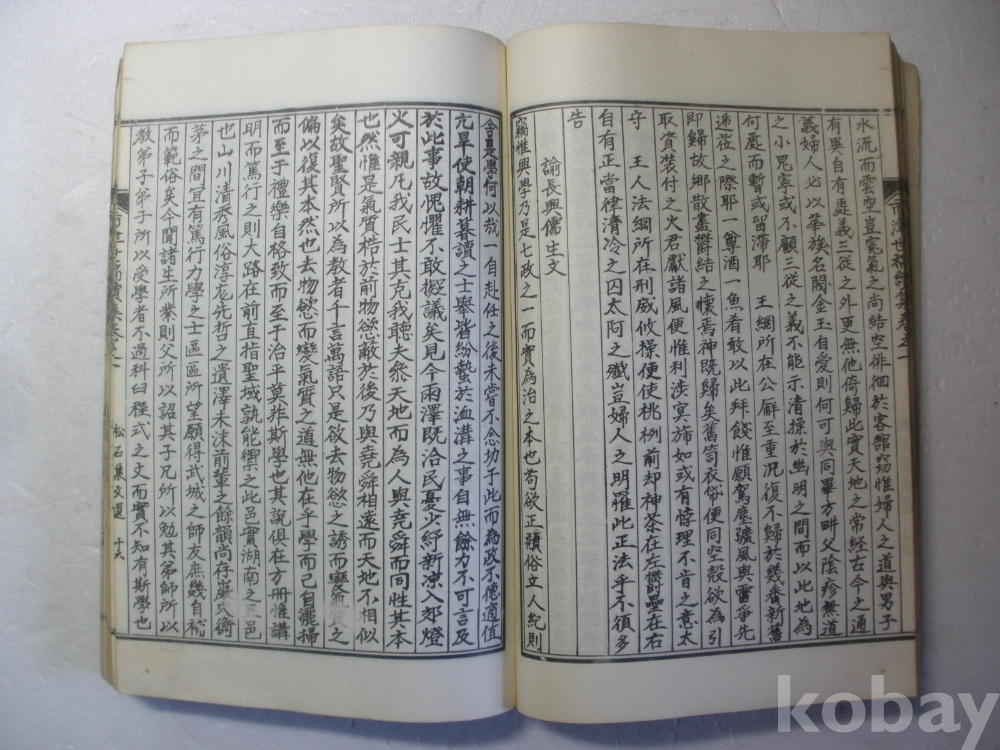 水流而雲空豈寃氣之尚結空徘徊於客館窃惟婦人之道與男子
有異自有處義三從之外更無他倚歸此實天地之常経古今之通
義婦人必以華族名閥金玉自愛則何可與同畢方畊父陰疹無道
之小鬼寧或不顧三從之義不能示清操於幽明之間而以此地為
何處而暫或留滯耶 王綱所在公廨至重況復不歸於幾番新舊
遞莅之際耶一尊酒一魚肴敢以此拜餞惟願駕塵驖風與雷爭先
即歸故郷散盡欝結之懷焉神既歸矣舊笥衣帒便同空殼欲為引
取資装付之火君獻諸風便惟利涉㝠旆如或有悖理不肯之意太
守 王人法綱所在刑威攸操便使桃栵前却神荼在左欝壘在右
自有正當律淸冷之囚太阿之殱豈婦人之明罹此正法乎不須多
告
諭長興儒生文
竊惟興學乃是七政之一而實為治之本也苟欲正頽俗立人紀則
舍是學何以哉一自赴任之後未嘗不念功于此而為政不德適値
亢旱使朝耕暮讀之士舉皆紛蟄於洫溝之事自無餘力不可言及
於此事故愧懼不敢擬議矣見今雨澤既洽民憂少紓新凉入郊燈
火可親凡我民士其克我聴夫叅天地而為人與堯舜而同性其本
也然惟是氣質梏於前物慾蔽於後乃與堯舜相遠而天地不相似
矣故聖賢所以為教者千言萬語只是欲去物慾之誘而變氣之
偏以復其本然也去物慾而變氣質之道無他在乎學而已自灑掃
而至于禮樂自格致而至于治平莫非斯學也其說俱在方冊惟講
明而篤行之則大路在前直指聖域孰能禦之此邑實湖南之一邑
也山川清秀風俗淳厖先哲之遺澤未沫前輩之餘韻尚存巖穴衡
茅之間冝有篤行力學之士區區所望願得武城之師友庶幾自补
而範俗矣今聞諸生所業則父所以詔其子兄所以勉其弟師所以
教弟子弟子所以受學者不過科臼程式之文而實不知有斯學也
松石集文選 十六